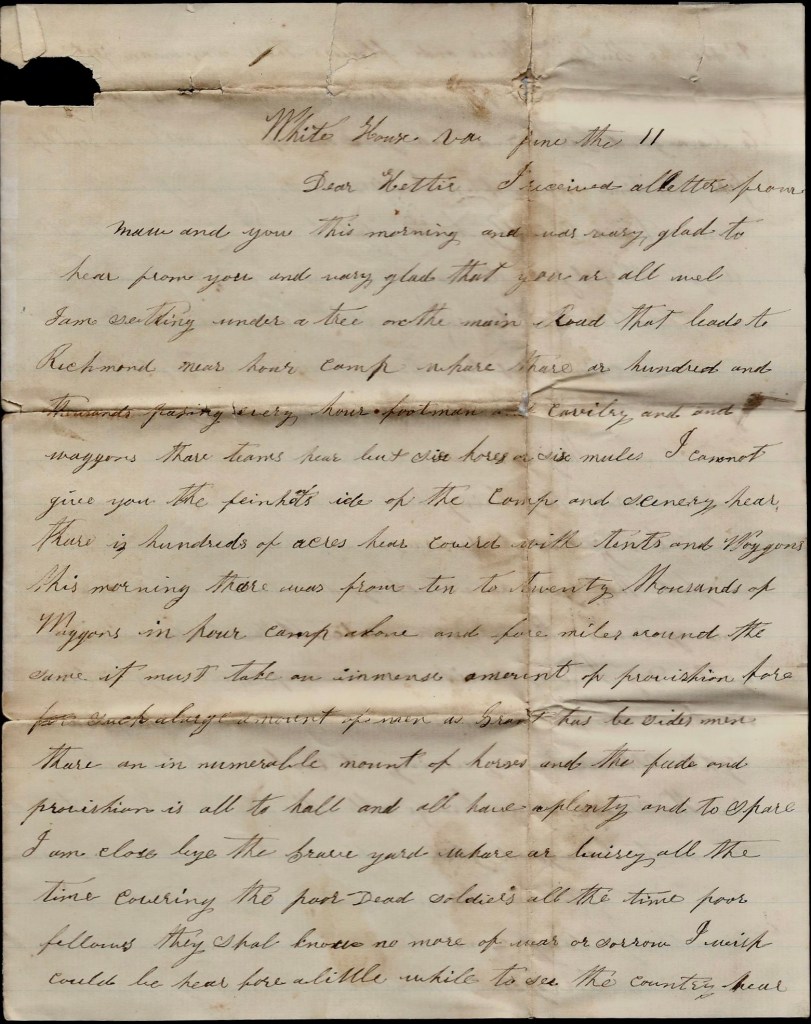 White House Va june the 11
Dear Hettie I received alletter from
maw and you this morning and was vary glad to
hear from you and vary glad that you ar all wel
I am setting under a tree on the main Road that leads to
Richmond near hour camp whare thare ar hundred and
thousands pasing every hour footman and Cavilry and and
waggons thare teams hear but six hores or six mules I cannot
give you the feinhts ide of the camp and scenery hear
thare is hundreds of acres hear coverd with tents and Waggons
this morning there was from ten to twenty thousands of
Waggons in hour camp alone and fore miles around the
same it must take an immense amount of provishion fore
for such alarge amount of men as Grant has be sides men
thare an in numerable mount of horses and the fude and
provishion is all to hall and all have aplenty and to spare
I am close bye the Grave yard whare ar buisey all the
time covering the poor Dead soldiers all the time poor
fellows they shal know no more of war or sorrow I wish
could be hear fore alittle while to see the country hear